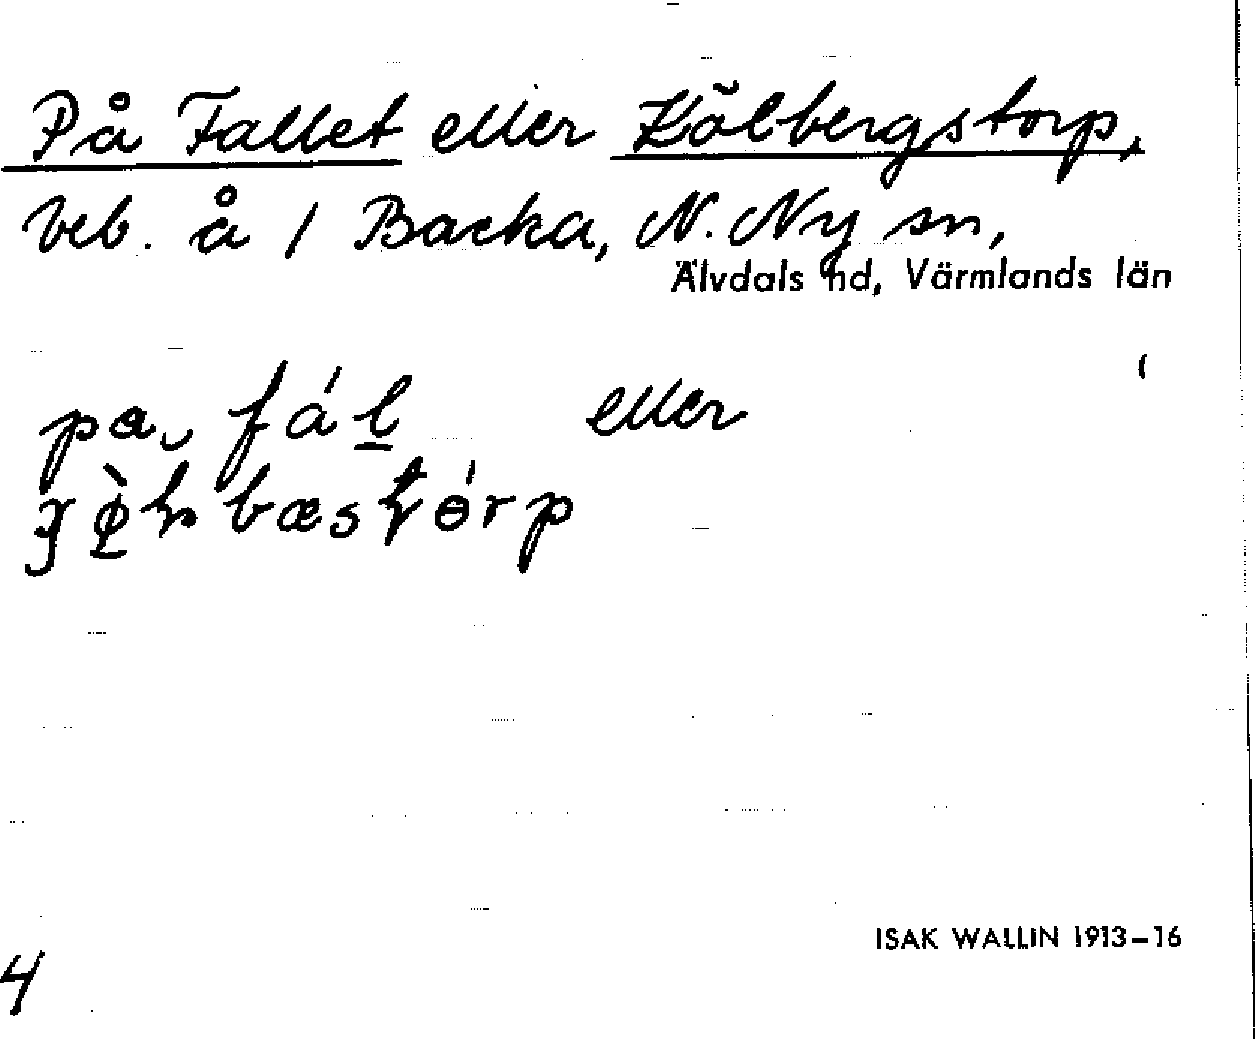 På Fallet eller Kölbergstorp,
beb. å / Backa, N. Ny sn,
Älvdals hd, Värmlands län
pa fál eller
ISAK WALLIN 1913–16
4